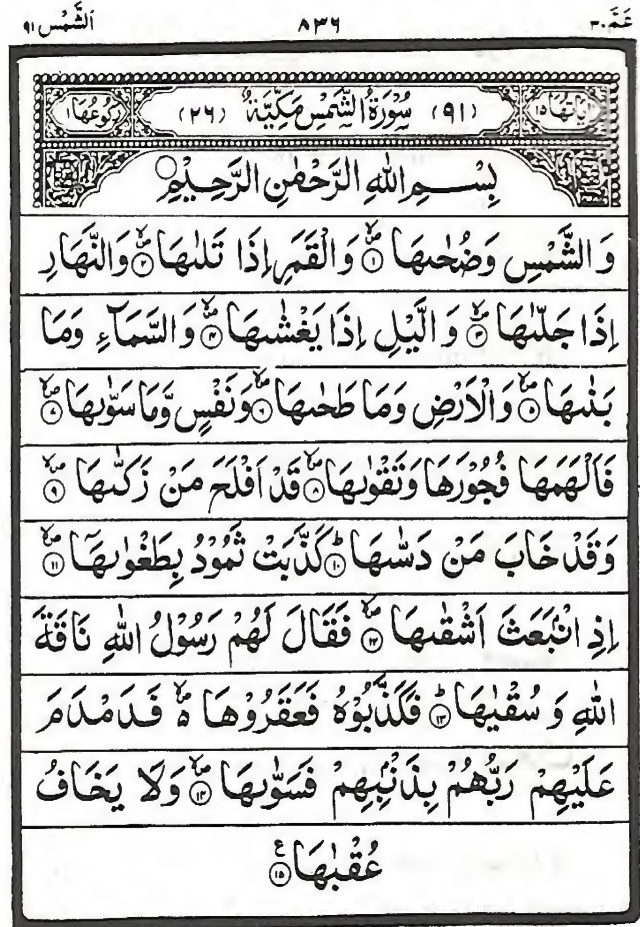 عَمَّ ٣٠ ٨٣٦ اَلشَّمْس ٩١
اٰيَاتُهَا ١٥ (٩١) سُوْرَةُ الشَّمْسِ مَكِّيَّةٌ (٢٦) رُكُوْعُهَا ١
بِسْمِ اللّٰهِ الرَّحْمٰنِ الرَّحِيْمِ
وَالشَّمْسِ وَضُحٰىهَا ۪ۙ‏﴿۱﴾ وَالْقَمَرِ اِذَا تَلٰىهَا ۪ۙ‏﴿۲﴾ وَالنَّهَارِ
اِذَا جَلّٰىهَا ۪ۙ‏﴿۳﴾ وَالَّيْلِ اِذَا يَغْشٰىهَا ۪ۙ‏﴿۴﴾ وَالسَّمَآءِ وَمَا
بَنٰىهَا ۪ۙ‏﴿۵﴾ وَالْاَرْضِ وَمَا طَحٰىهَا ۪ۙ‏﴿۶﴾ وَنَفْسٍ وَّمَا سَوّٰىهَا ۪ۙ‏﴿۷﴾
فَاَلْهَمَهَا فُجُوْرَهَا وَتَقْوٰىهَا ۪ۙ‏﴿۸﴾ قَدْ اَفْلَحَ مَنْ زَكّٰىهَا ۪ۙ‏﴿۹﴾
وَقَدْ خَابَ مَنْ دَسّٰىهَا ؕ‏﴿۱۰﴾ كَذَّبَتْ ثَمُوْدُ بِطَغْوٰىهَاۤ ۪ۙ‏﴿۱۱﴾
اِذِ انْۢبَعَثَ اَشْقٰىهَا ۪ۙ‏﴿۱۲﴾ فَقَالَ لَهُمْ رَسُوْلُ اللّٰهِ نَاقَةَ
اللّٰهِ وَسُقْيٰهَا ؕ‏﴿۱۳﴾ فَكَذَّبُوْهُ فَعَقَرُوْهَا ۪ۙ فَدَمْدَمَ
عَلَيْهِمْ رَبُّهُمْ بِذَنْۢبِهِمْ فَسَوّٰىهَا ۪ۙ‏﴿۱۴﴾ وَلَا يَخَافُ
عُقْبٰهَا ﴿۱۵﴾ ع